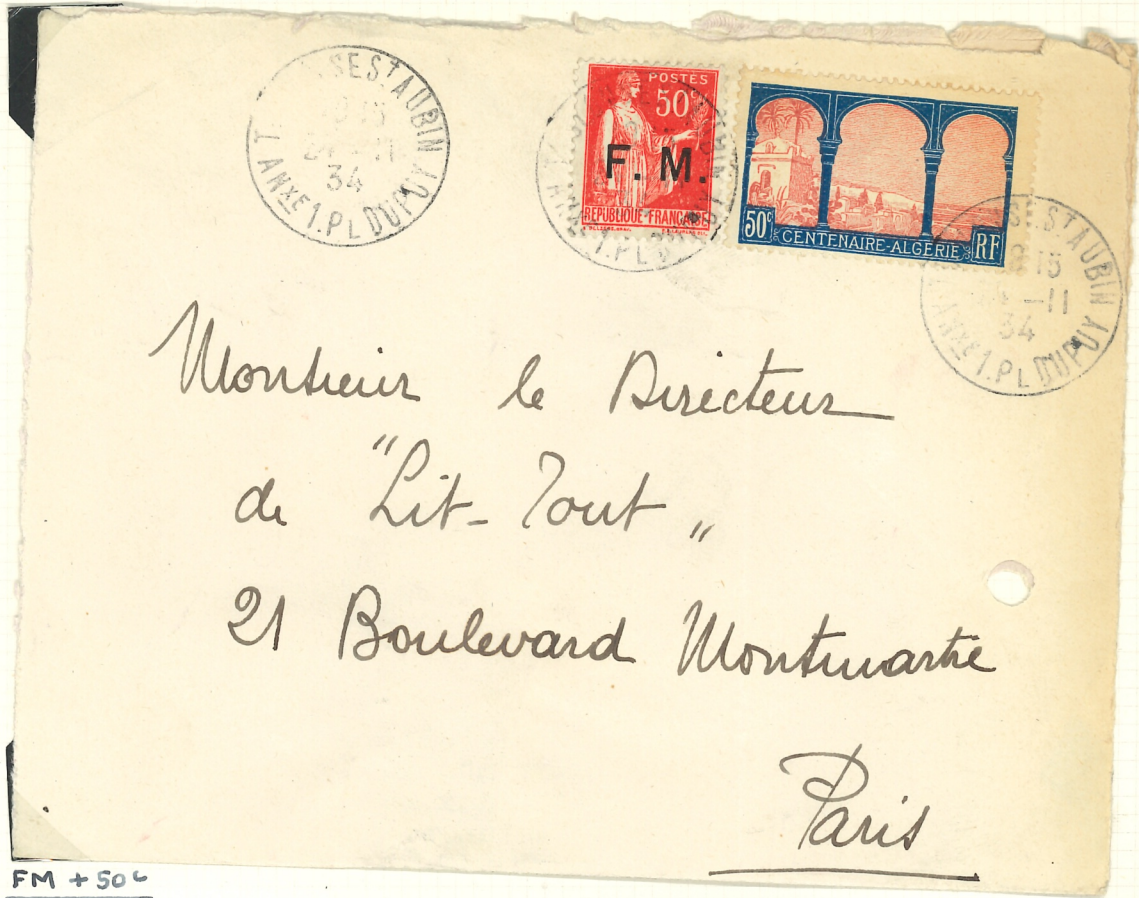 ST AUBIN
34
ANXE 1. PL DUPUY
POSTES
50c
F. M.
REPUBLIQUE FRANCAISE
50c CENTENAIRE-ALGÉRIE RF
ST AUBIN
15
-11
34
ANXE 1. PL DUPUY
Monsieur le Directeur
de "Lit-Tout"
21 Boulevard Montmartre
Paris
FM + 50c